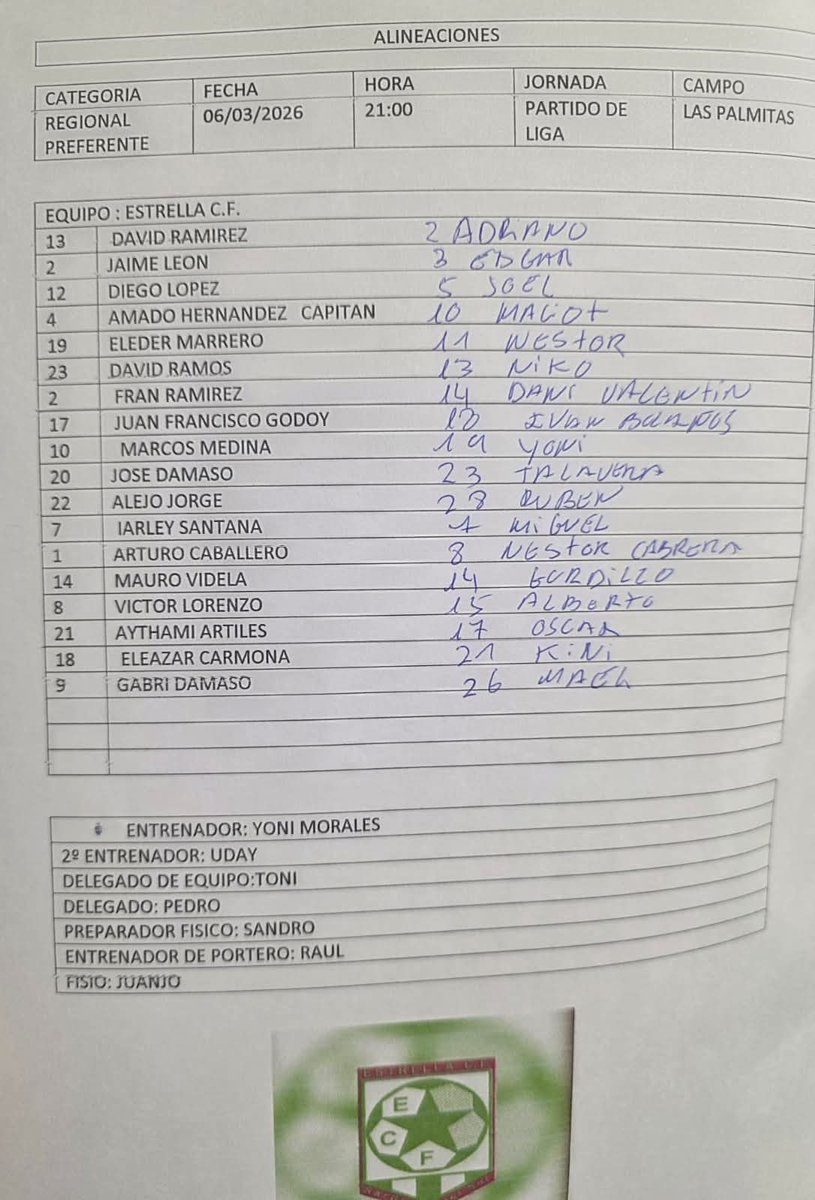 ALINEACIONES
CATEGORIA FECHA HORA JORNADA CAMPO
REGIONAL PREFERENTE 06/03/2026 21:00 PARTIDO DE LIGA LAS PALMITAS
EQUIPO : ESTRELLA C.F.
13 DAVID RAMIREZ 2 ADRIANO
2 JAIME LEON 3 EDGAR
12 DIEGO LOPEZ 5 JOEL
4 AMADO HERNANDEZ CAPITAN 10
19 ELEDER MARRERO 11 NESTOR
23 DAVID RAMOS 13 NIKO
2 FRAN RAMIREZ 14 DANI VALENTIN
17 JUAN FRANCISCO GODOY IVAN BOLAÑOS
10 MARCOS MEDINA 19 YONI
20 JOSE DAMASO 23 TALAVERA
22 ALEJO JORGE 28 RUBEN
7 IARLEY SANTANA MIGUEL
1 ARTURO CABALLERO 8 NESTOR CABRERA
14 MAURO VIDELA 14 GORDILLO
8 VICTOR LORENZO 15 ALBERTO
21 AYTHAMI ARTILES 17 OSCAR
18 ELEAZAR CARMONA 21 KINI
9 GABRI DAMASO 26 MAEL
ENTRENADOR: YONI MORALES
2º ENTRENADOR: UDAY
DELEGADO DE EQUIPO:TONI
DELEGADO: PEDRO
PREPARADOR FISICO: SANDRO
ENTRENADOR DE PORTERO: RAUL
FISIO: JUANJO
ESTRELLA C.F.
E
C
F